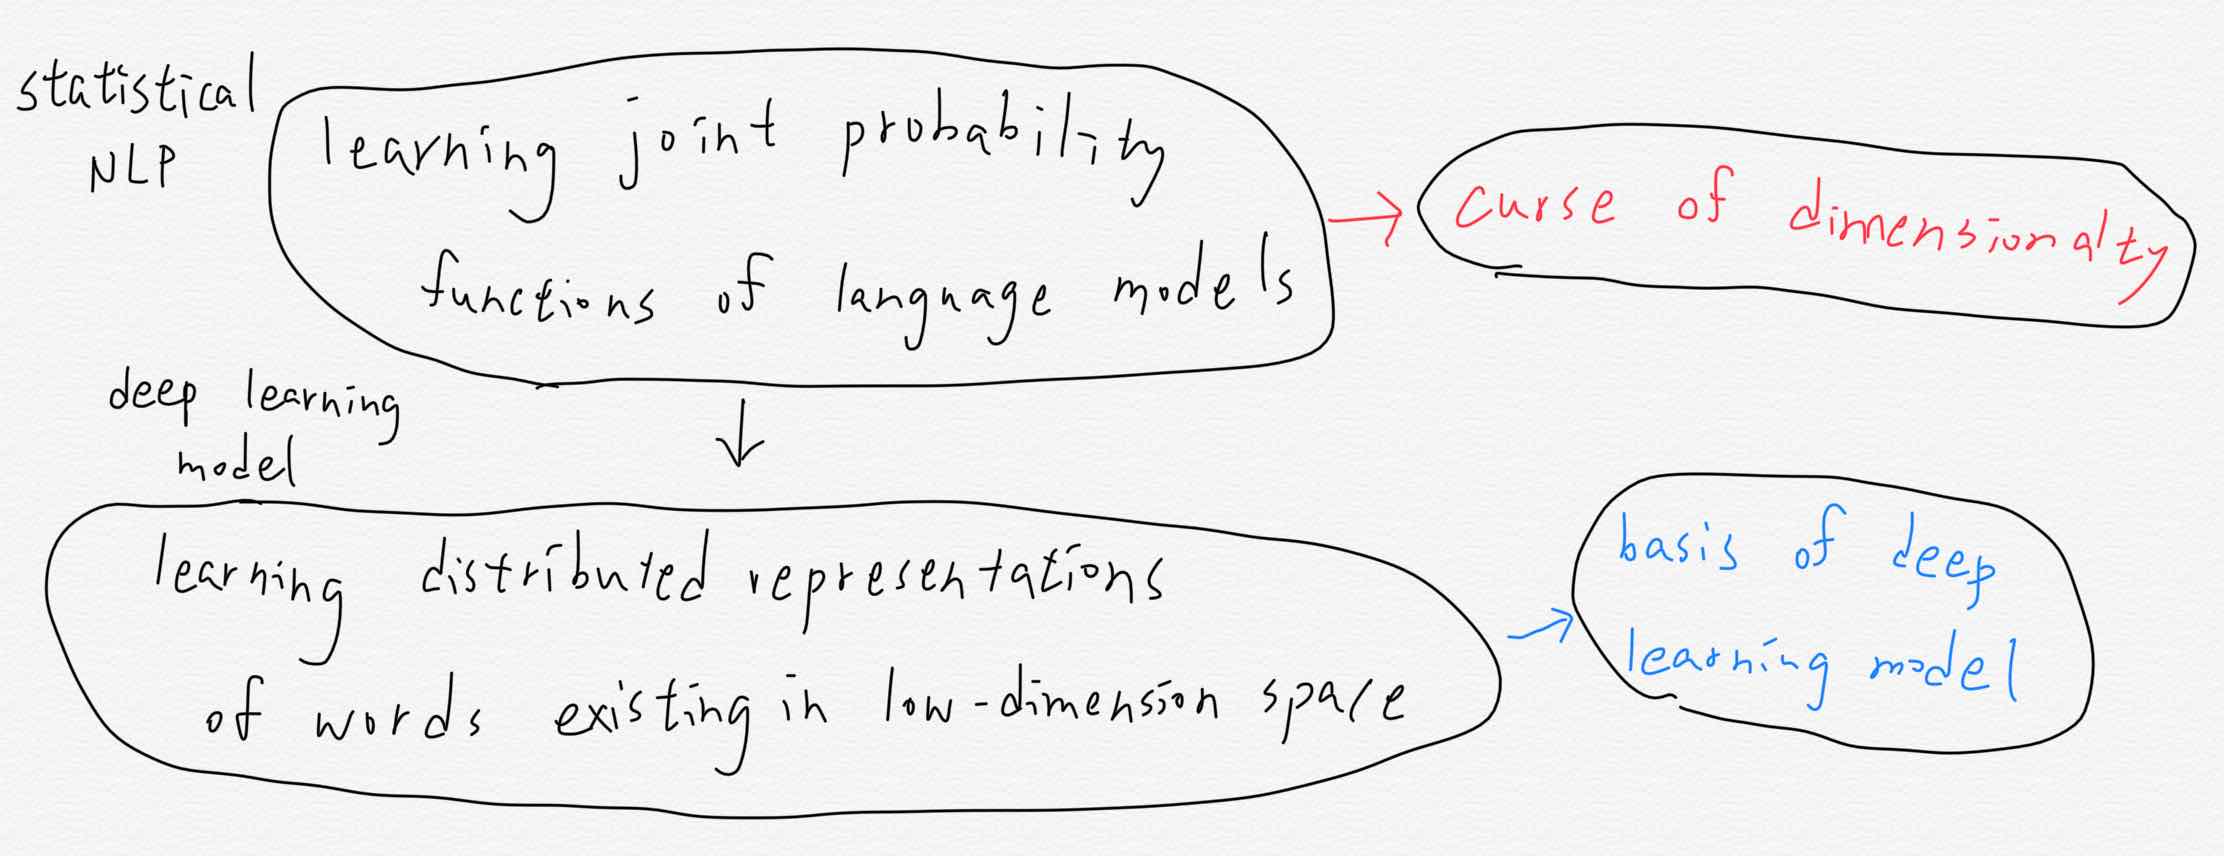 statistical
NLP
learning joint probability
functions of language models
curse of dimensionalty
deep learning
model
learning distributed representations
of words existing in low-dimension space
basis of deep
learning model